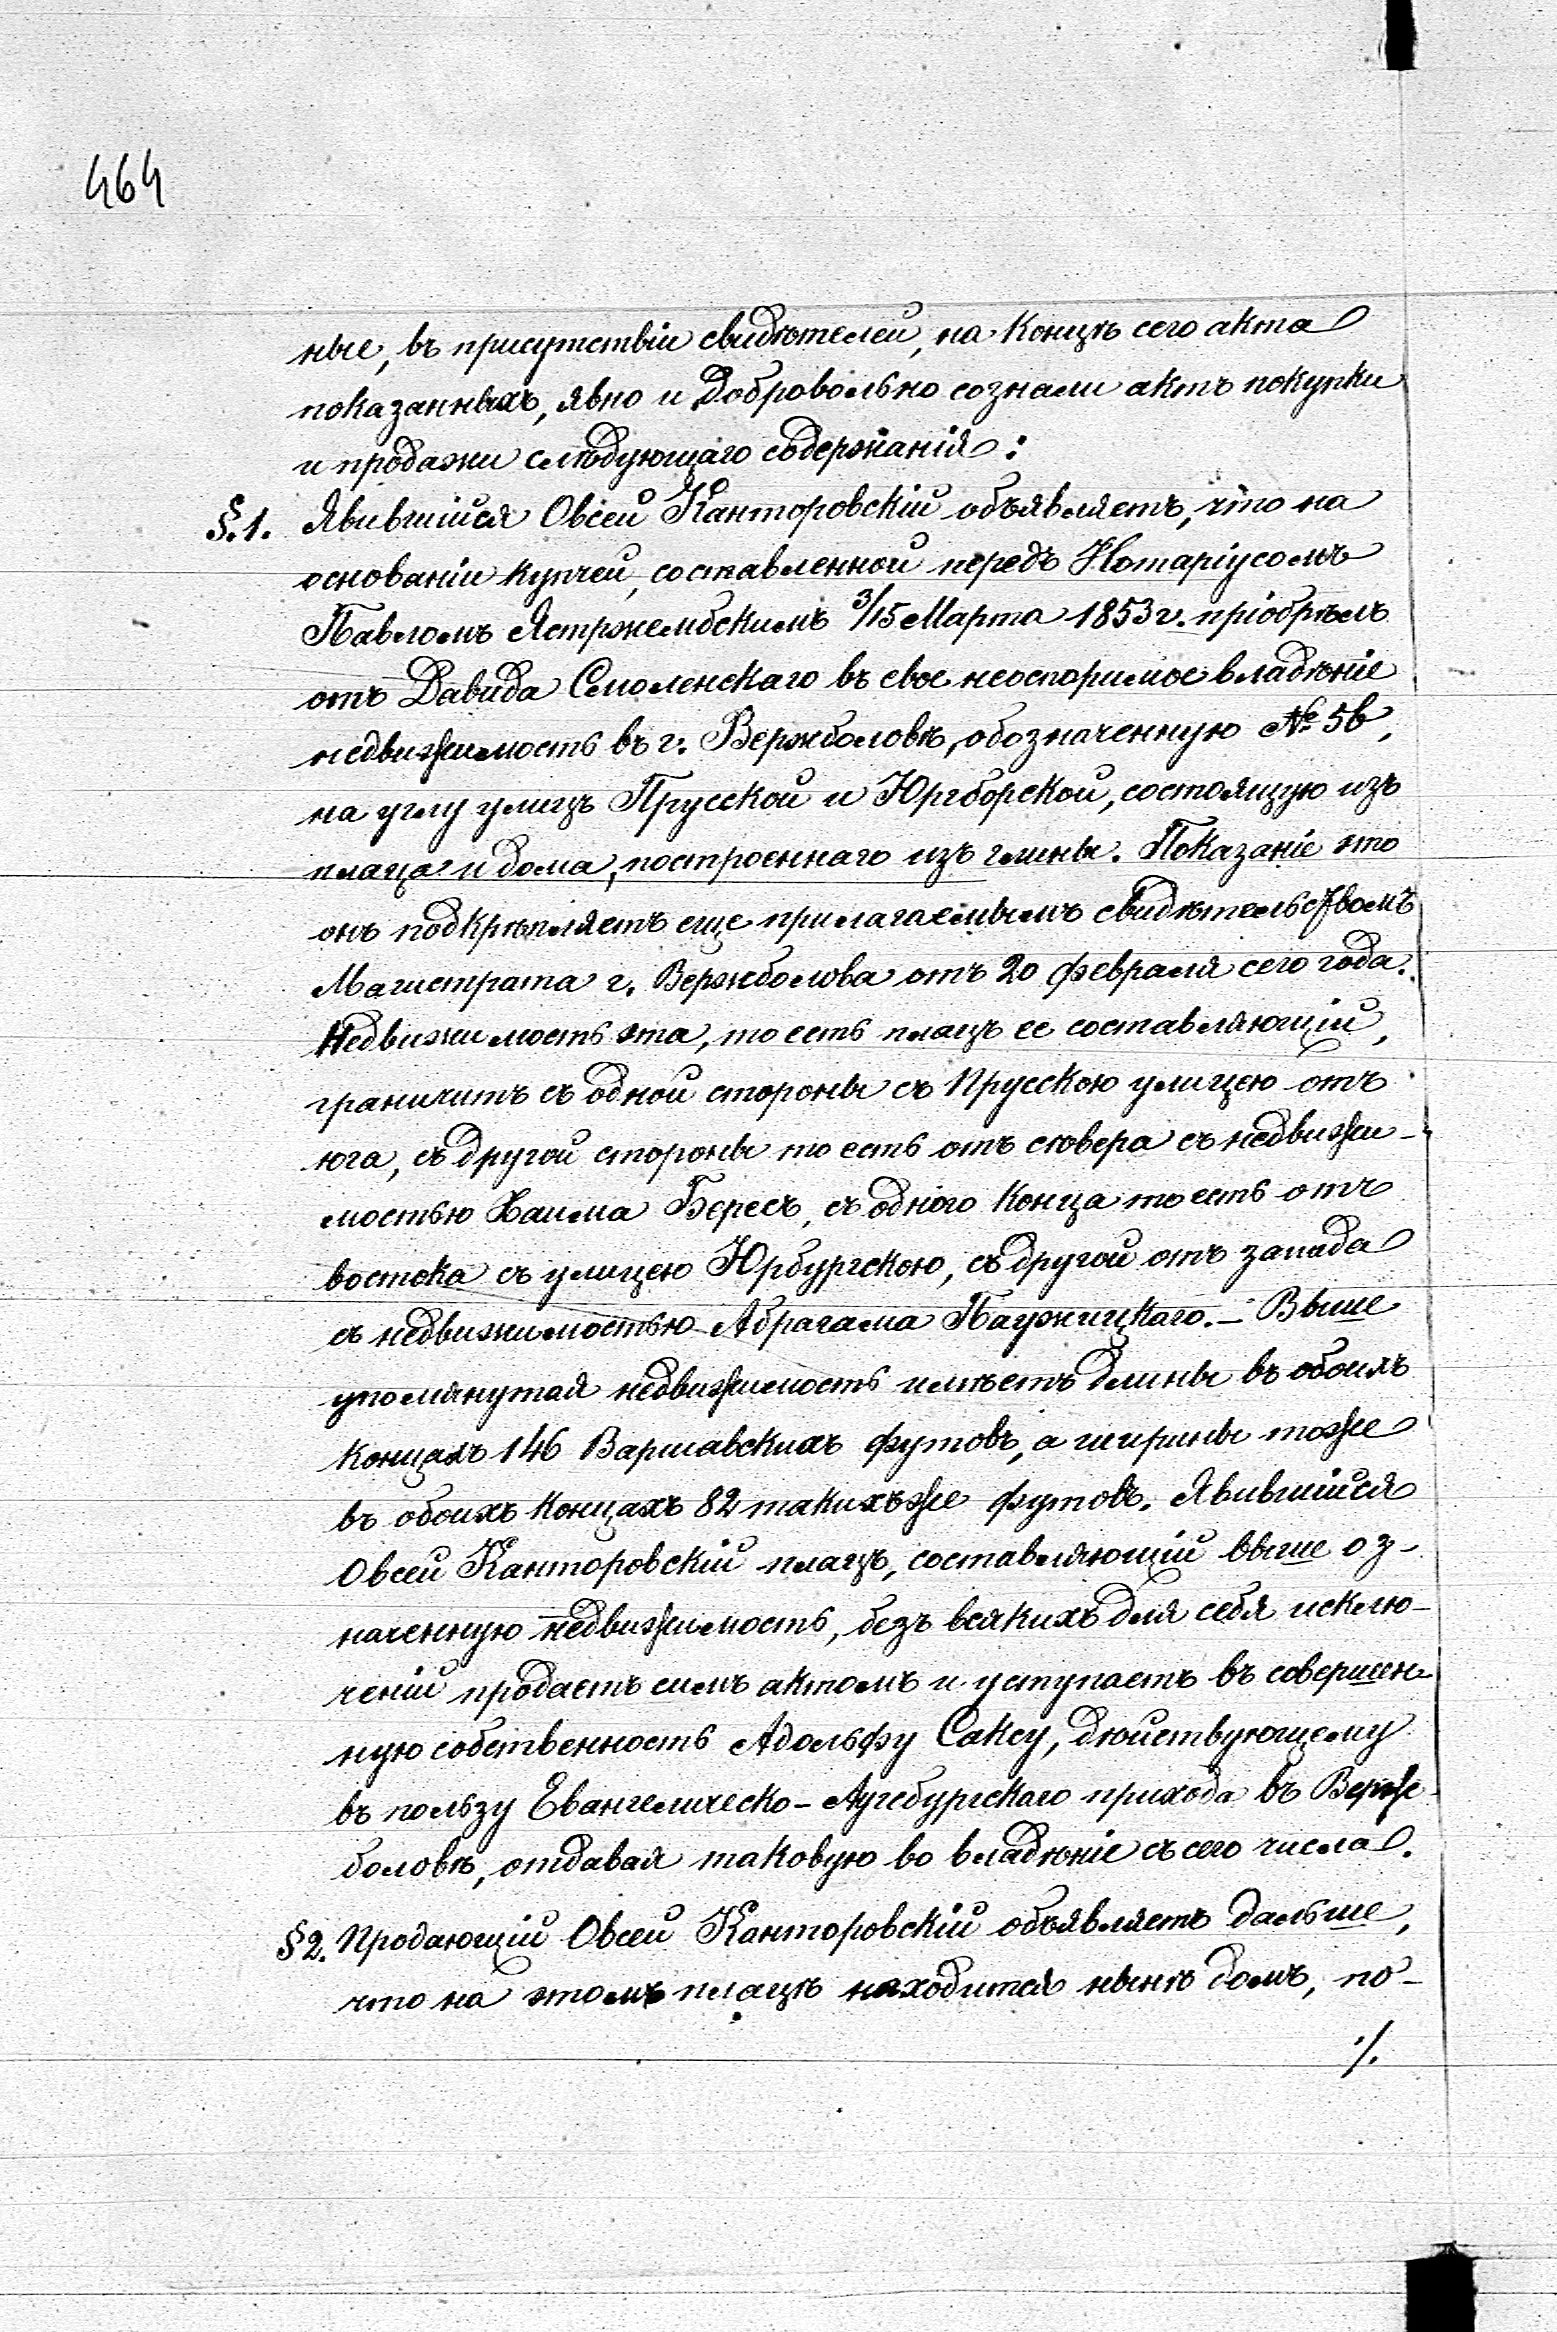 464
ные, въ присутствіи свидѣтелей, на концѣ сего акта
показанныхъ, явно и добровольно сознали актъ покупки
и продажи слѣдующаго содержанія:
§.1. Явившійся Овсей Канторовскій объявляетъ, что на
основаніи купчей, составленной передъ Нотаріусомъ
Павломъ Ястржембскимъ 3/15 Марта 1853 г. пріобрѣлъ
отъ Давида Смоленскаго въ свое неоспоримое владѣніе
недвижимость въ г. Вержболовѣ, обозначенную № 5в,
на углу улицъ Прусской и Юргборской, состоящую изъ
плаца и дома, построеннаго изъ глины. Показаніе это
онъ подкрѣпляетъ еще прилагаемымъ свидѣтельствомъ
Магистрата г. Вержболова отъ 20 февраля сего года.
Недвижимость эта, то есть плацъ ее составляющій,
граничитъ съ одной стороны съ Прусскою улицею отъ
юга, съ другой стороны то есть отъ сѣвера съ недвижи-
мостью Хаима Бересъ, съ одного конца то есть отъ
востока съ улицею Юрбургскою, съ другой отъ запада
съ недвижимостью Абрагама Паужицкаго. – Выше
упомянутая недвижимость имѣетъ длины въ обоихъ
концахъ 146 Варшавскихъ футовъ, а ширины тоже
въ обоихъ концахъ 82 такихъ же футовъ. Явившійся
Овсей Канторовскій плацъ, составляющій выше оз-
наченную недвижимость, безъ всякихъ для себя исклю-
ченій продаетъ симъ актомъ и уступаетъ въ совершен-
ную собственность Адольфу Саксу, дѣйствующему
въ пользу Евангелическо-Аугсбургскаго прихода въ Верж-
боловѣ, отдавая таковую во владѣніе съ сего числа.
§2. Продающій Овсей Канторовскій объявляетъ дальше,
что на этомъ плацѣ находится нынѣ домъ, по-
./.